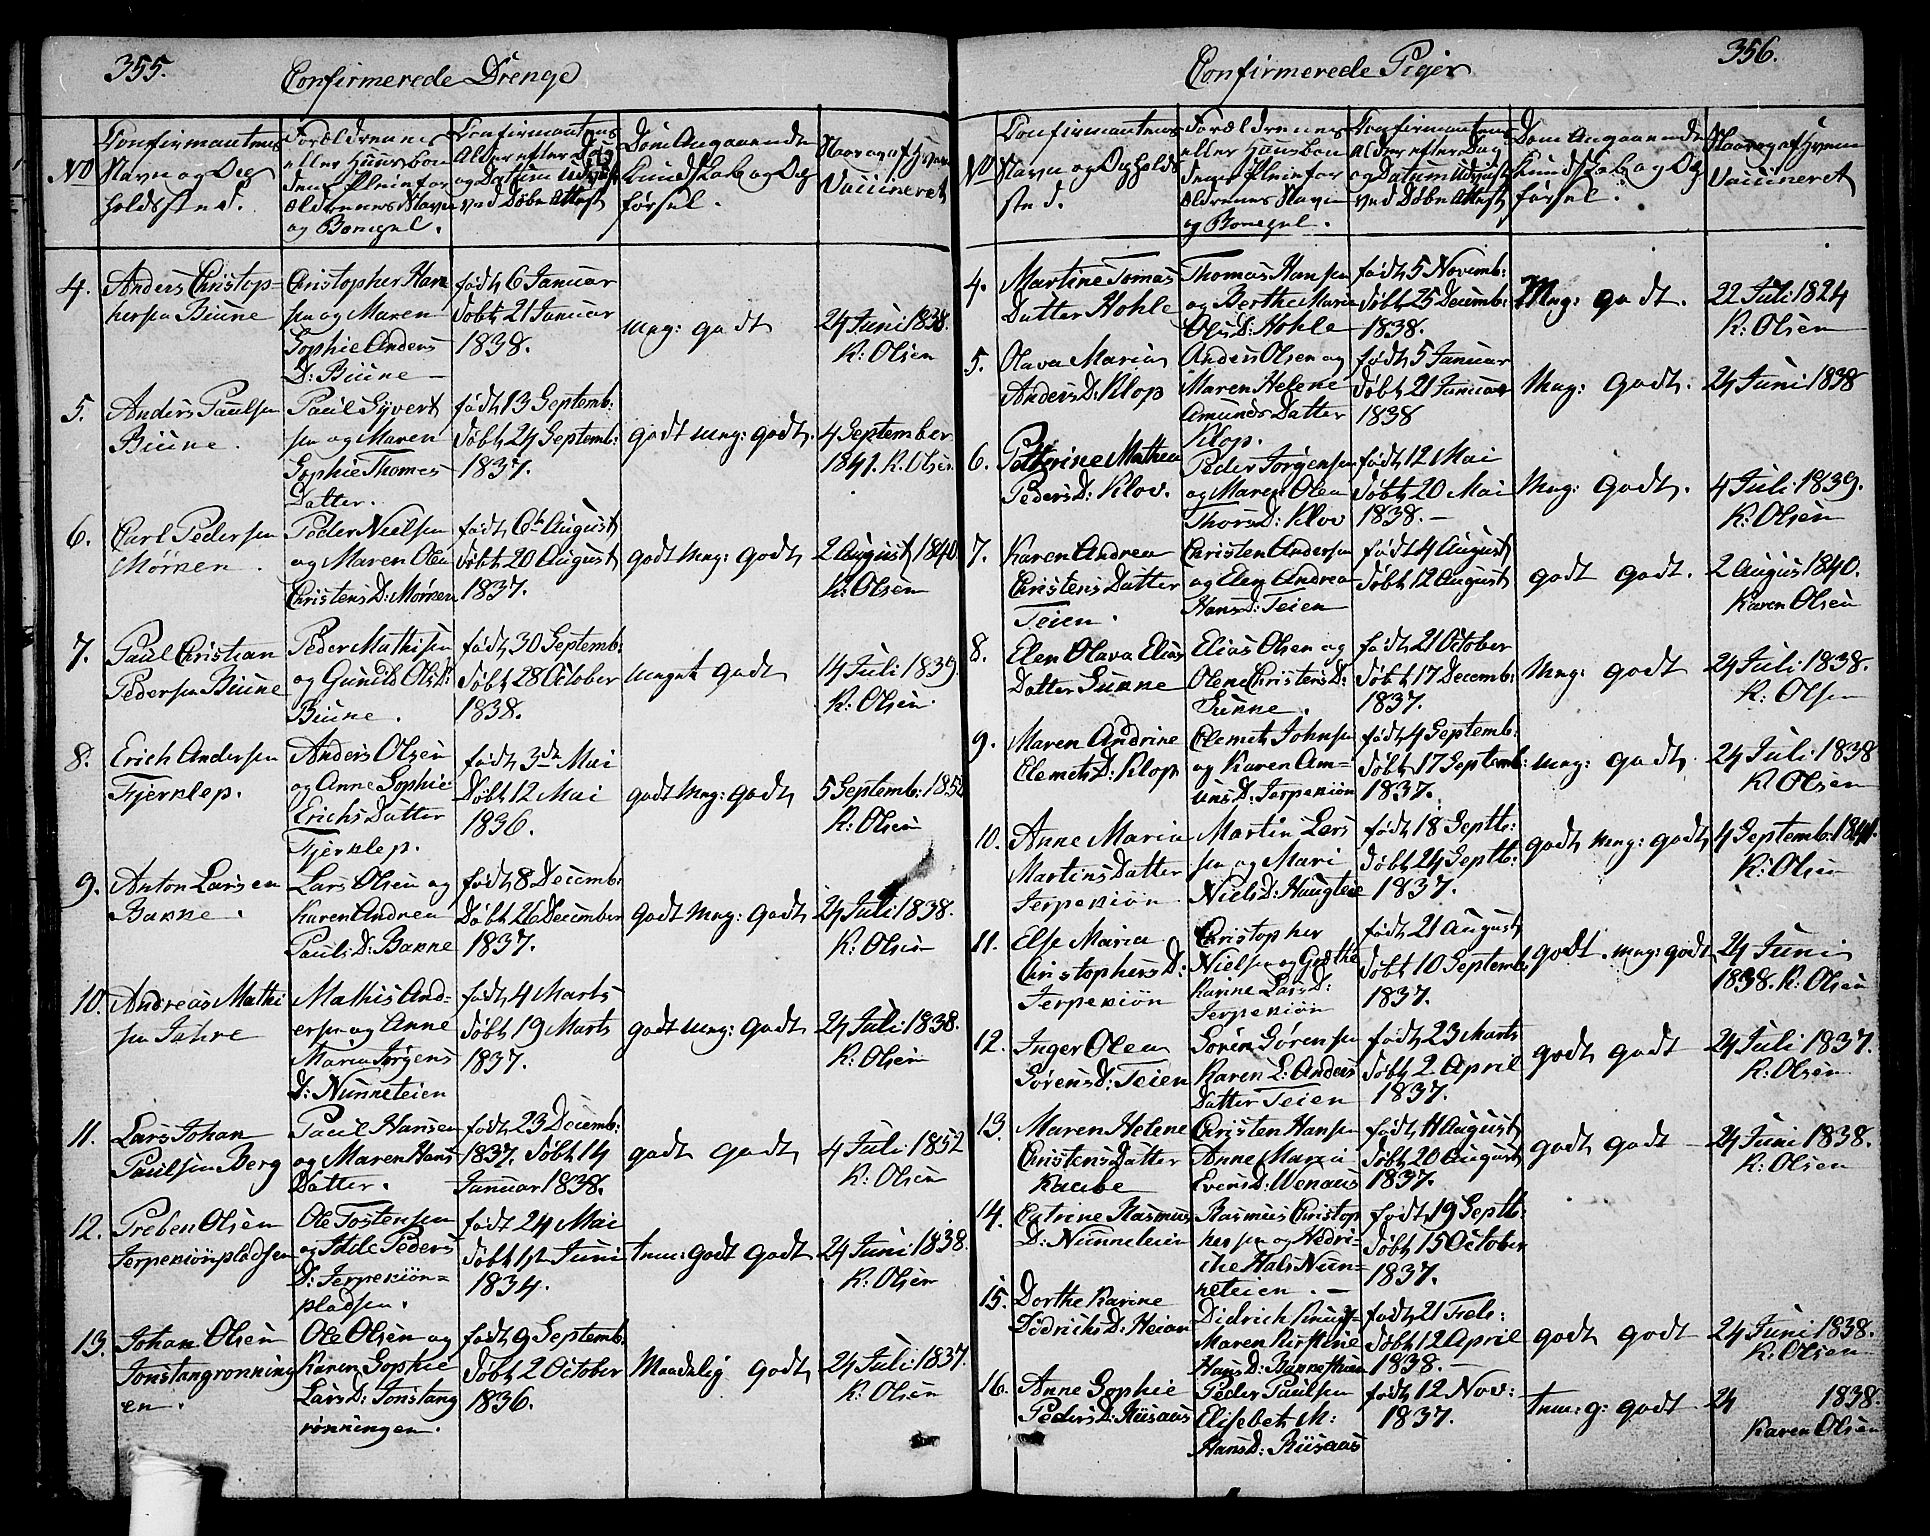 355.
Confirmerede Drenge
No
Confirmantens
Navn og Op
holdssted.
Forældrenes
eller Huusbon
dens Pleiefor
ældrenes Navn
og Bopæl.
Confirmantens
Alder efter Dag
og Datum udviist
ved Døbe Attest
Dom Angaaende
Kundskab og Op
førsel.
Naar og af hvem
Vaccineret
4.
Anders Christop=
hersen Biune
Christopher Han
sen og Maren
Sophie Anders
D: Biune
født 6 Januar
døbt 21 Januar
1838.
mag: godt
24 Juni 1838.
K: Olsen
5.
Anders Paulsen
Biune.
Paul Syvert
sen og Maren
Sophie Thomas
Datter.
født 13 Septemb:
døbt 24 Septemb:
1837.
godt mag: godt.
4 September
1841. K. Olsen
6.
Carl Pedersen
Mørken.
Peder Nielsen
og Maren Olea
Christens D: Mørken
født 6te August
døbt 20 August
1837.
godt mag: godt
2 August 1840
K: Olsen
7.
Paul Christian
Pedersen Biune
Peder Mathisen
og Gunild Ols D:
Biune.
født 30 Septemb:
døbt 28 October
1838.
maget godt
4 Juli 1839.
K: Olsen.
8.
Erich Andersen
Fjerklep.
Anders Olsen
og Anne Sophie
Erichs Datter
Fjerklep.
født 3de Mai
Døbt 12 Mai
1836.
godt mag: godt
5 Septemb: 185
K: Olsen
9.
Anton Larsen
Bakke.
Lars Olsen og
Karen Andrea
Pauls D: Bakke
født 8 Decemb:
Døbt 26 December
1837.
godt mag: godt
24 Juli 1838.
K: Olsen
10.
Andreas Mathi
sen Jahre
Mathis And=
ersen og Anne
Maria Jørgens
D: Nunneteien
født 4 Marts
døbt 19 Marts
1837.
godt mag: godt
24 Juli 1838.
K: Olsen
11.
Lars Johan
Paulsen Berg
Paul Hansen
og Maren Hans
Datter.
født 23 Decemb:
1837. døbt 14
Januar 1838.
godt godt
4 Juli 1852
K: Olsen
12.
Preben Olsen
Jerpekiönpladsen
Ole Tostensen
og Peders
D: Jerpekiön=
pladsen.
født 24 Mai
døbt 1st Juni
1834.
tem: godt godt
24 Juni 1838.
K: Olsen
13.
Johan Olsen
Jonstangrønning
en.
Ole Olsen og
Karen Sophie
Lars D: Jonstang
rønningen.
født 9 Septemb:
døbt 2 October
1836.
Maadelig godt
24 Juli 1837.
K: Olsen
356.
Confirmerede Piger
No
Confirmantens
Navn og Opholds
sted.
Forældrenes
eller Huusbon
dens Pleiefor
ældrenes Navn
og Bopæl.
Confirmantens
Alder efter Dag
og Datum udviist
ved Døbe Attest
Dom Angaaende
Kundskab og Op
førsel.
Naar og af hvem
Vaccineret
4.
Martine Tomas
Datter Hohle
Thomas Hansen
og Berthe Marie
Ols D: Hohle
født 5 Novemb:
døbt 25 Decemb:
1838.
Mag: godt.
22 Juli 1824
K: Olsen
5.
Olava Maria
Anders D: Klop
Anders Olsen og
Maren Helene
Amunds Datter
Klop.
født 5 Januar
Døbt 21 Januar
1838
mag: godt.
24 Juni 1838
6.
Petterine Mathea
Peders D: Klov.
Peder Jørgensen
og Maren Olea
Thors D: Klov
født 12 Mai
døbt 20 Mai
1838.
mag: godt.
4 Juli 1839.
K: Olsen
7.
Karen Andrea
Christens Datter
Teien.
Christen Andersen
og Elen Andrea
Hans D: Teien
født 4 August
døbt 12 August
godt godt.
2 Augus 1840.
Karen Olsen
8.
Elen Olava Elias
Datter Sukke
Elias Olsen og
Olene Christens D:
Sukke.
født 21 October
døbt 17 Decemb:
1837.
mag: godt
24 Juli 1838.
K: Olsen
9.
Maren Andrine
Clemets D: Klop
Clemets Johnsen
og Karen Am=
uns D: Jerpekiön
født 4 Septemb:
døbt 17 Septemb:
1837.
mag: godt.
24 Juli 1838
K Olsen
10.
Anne Maria
Martins Datter
Jerpekiön
Martin Lars
sen og Mari
Niels D: Haugteie
født 18 Septb:
døbt 24 Septb:
1837.
godt mag: godt
4 Septemb: 1841.
K: Olsen
11.
Else Maria
Christophers D:
Jerpekiön
Christopher
Nielsen og Grethe
Karine Lars D:
Jerpekiön
født 21 August
døbt 10 Septemb
1837.
godt. mag: godt
24 Juni
1838. K: Olsen
12.
Inger Olea
Sørens D: Teien
Søren Sørensen
Karen L: Anders
Datter Teien
født 23 Marts
døbt 2 April
1837.
godt godt
24 Juli 1837.
K: Olsen
13.
Maren Helene
Christens Datter
Raabe
Christen Hansen
Anne Maria
Evens D: Wenaas
født 11 August
Døbt 20 August
1837.
godt godt
24 Juni 1838.
K: Olsen
14.
Catrine Rasmus
D: Nunneteien
Rasmus Christop
hersen og Hedri=
che Hals Nun=
keteien.
født 19 Septb:
døbt 15 October
1837.
15.
Dorthe Karine
Didrichs D: Heian
Didrich
Maren Kirstine
Hans D: Bakkethuen
født 21 Feb:
døbt 12 April
1838.
godt godt
24 Juni 1838.
K: Olsen
16.
Anne Sophie
Peders D: Riisaas
Peder Paulsen
Elisebet M:
Hans D: Riisaas
født 12 Nov:
1837.
tem: g: godt
24 1838.
Karen Olsen